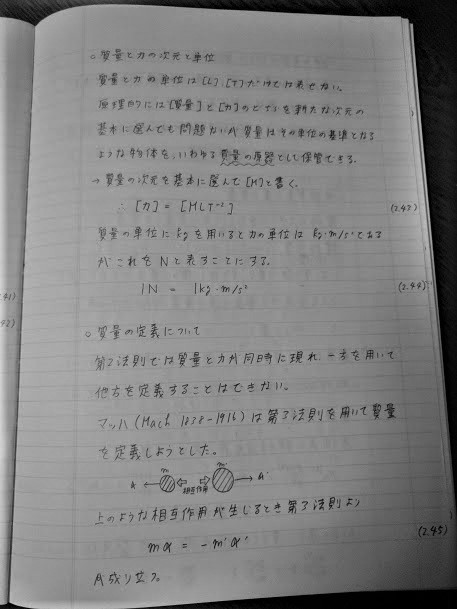 ○ 質量と力の次元と単位
質量と力の単位は[L],[T]だけでは表せない。
原理的には[質量]と[力]のどちらを新たな次元の
基本に選んでも問題ないが質量はその単位の基準となる
ような物体を、いわゆる質量の原器として保管できる。
→ 質量の次元を基本に選んで[M]と書く。
∴ [力] = [MLT⁻²] (2.43)
質量の単位にkgを用いると力の単位は kg·m/s²である
が これを Nと表すことにする。
1N = 1kg·m/s² (2.44)
2.41)
2.42)
○ 質量の定義について
第2法則では質量と力が同時に現れ、一方を用いて
他方を定義することはできない。
マッハ(Mach 1838-1916)は第3法則を用いて質量
を定義しようとした。
m m'
a 相互作用 a'
上のような相互作用が生じるとき第3法則より
ma = -m'a' (2.45)
が成り立つ。